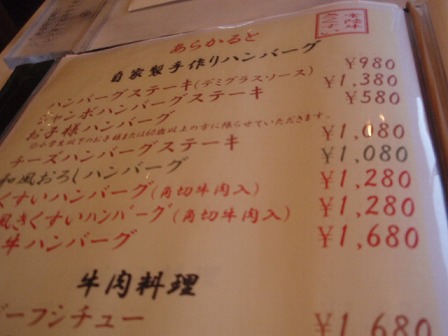 あらかると
自家製手作りハンバーグ
ハンバーグステーキ(デミグラスソース) ¥980
ジャンボハンバーグステーキ ¥1,380
お子様ハンバーグ ¥580
※小学生以下のお子様または65歳以上の方に限らせていただきます。
チーズハンバーグステーキ ¥1,080
和風おろしハンバーグ ¥1,080
くすいハンバーグ(角切牛肉入) ¥1,280
風きくすいハンバーグ(角切牛肉入) ¥1,280
牛ハンバーグ ¥1,680
牛肉料理
ビーフシチュー ¥1,680